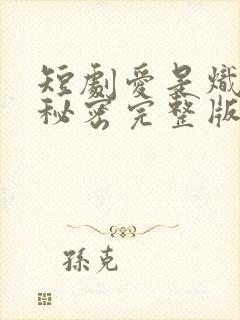 短劇愛是熾
秘密完整版
孫克